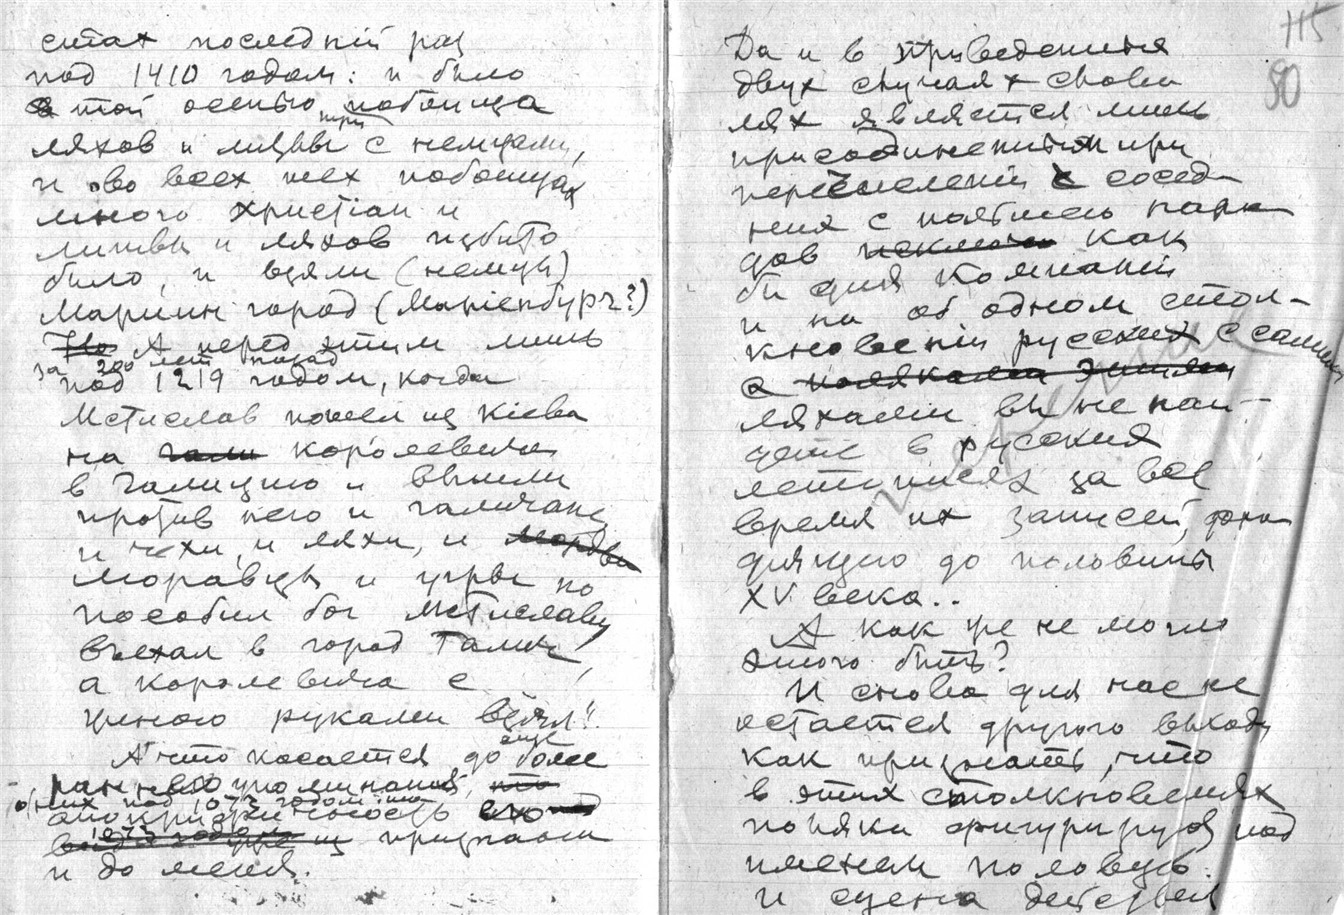 ситах последній раз
под 1410 годом: и было
в той осенью три побоища
ляхов и литвы с немцами,
и во всех тех побоищах
много христіан и
литвы и ляхов избито
было, и взяли (немцы)
Мариин город (Маріенбург?)
Но А перед этим лишь
за 200 лет назад
под 1219 годом, когда
Мстислав пошел из Кіева
на гали королевича
в Галицию и вышли
против него и галичане
и чехи, и ляхи, и мордва
моравцы и угры но
пособил бог Мстиславу
въехал в город Галич,
а королевича с
женою руками взял"
А что касается до еще более
раннего упоминания, что
о них под 1073 годом, то
апокрифичность его
1073 годом признаны
и до меня.
115
80
Да и в приведенныя
двух случаях слово
лях является лишь
присоединенным при
перечислении с сосед-
ния с понятием наро-
дов как
бы для компаніи
и ни об одном стол-
кновеніи русских с самими
с поляками
ляхами вы не най-
дете в русския
летописях за все
время их записей, дохо-
дящую до половины
XV века..
А как же не могло
этого быть?
И снова для нас не
остается другого выхода
как признать, что
в этих столкновениях
поляки фигурируют под
именем половцев.
и сцена действия